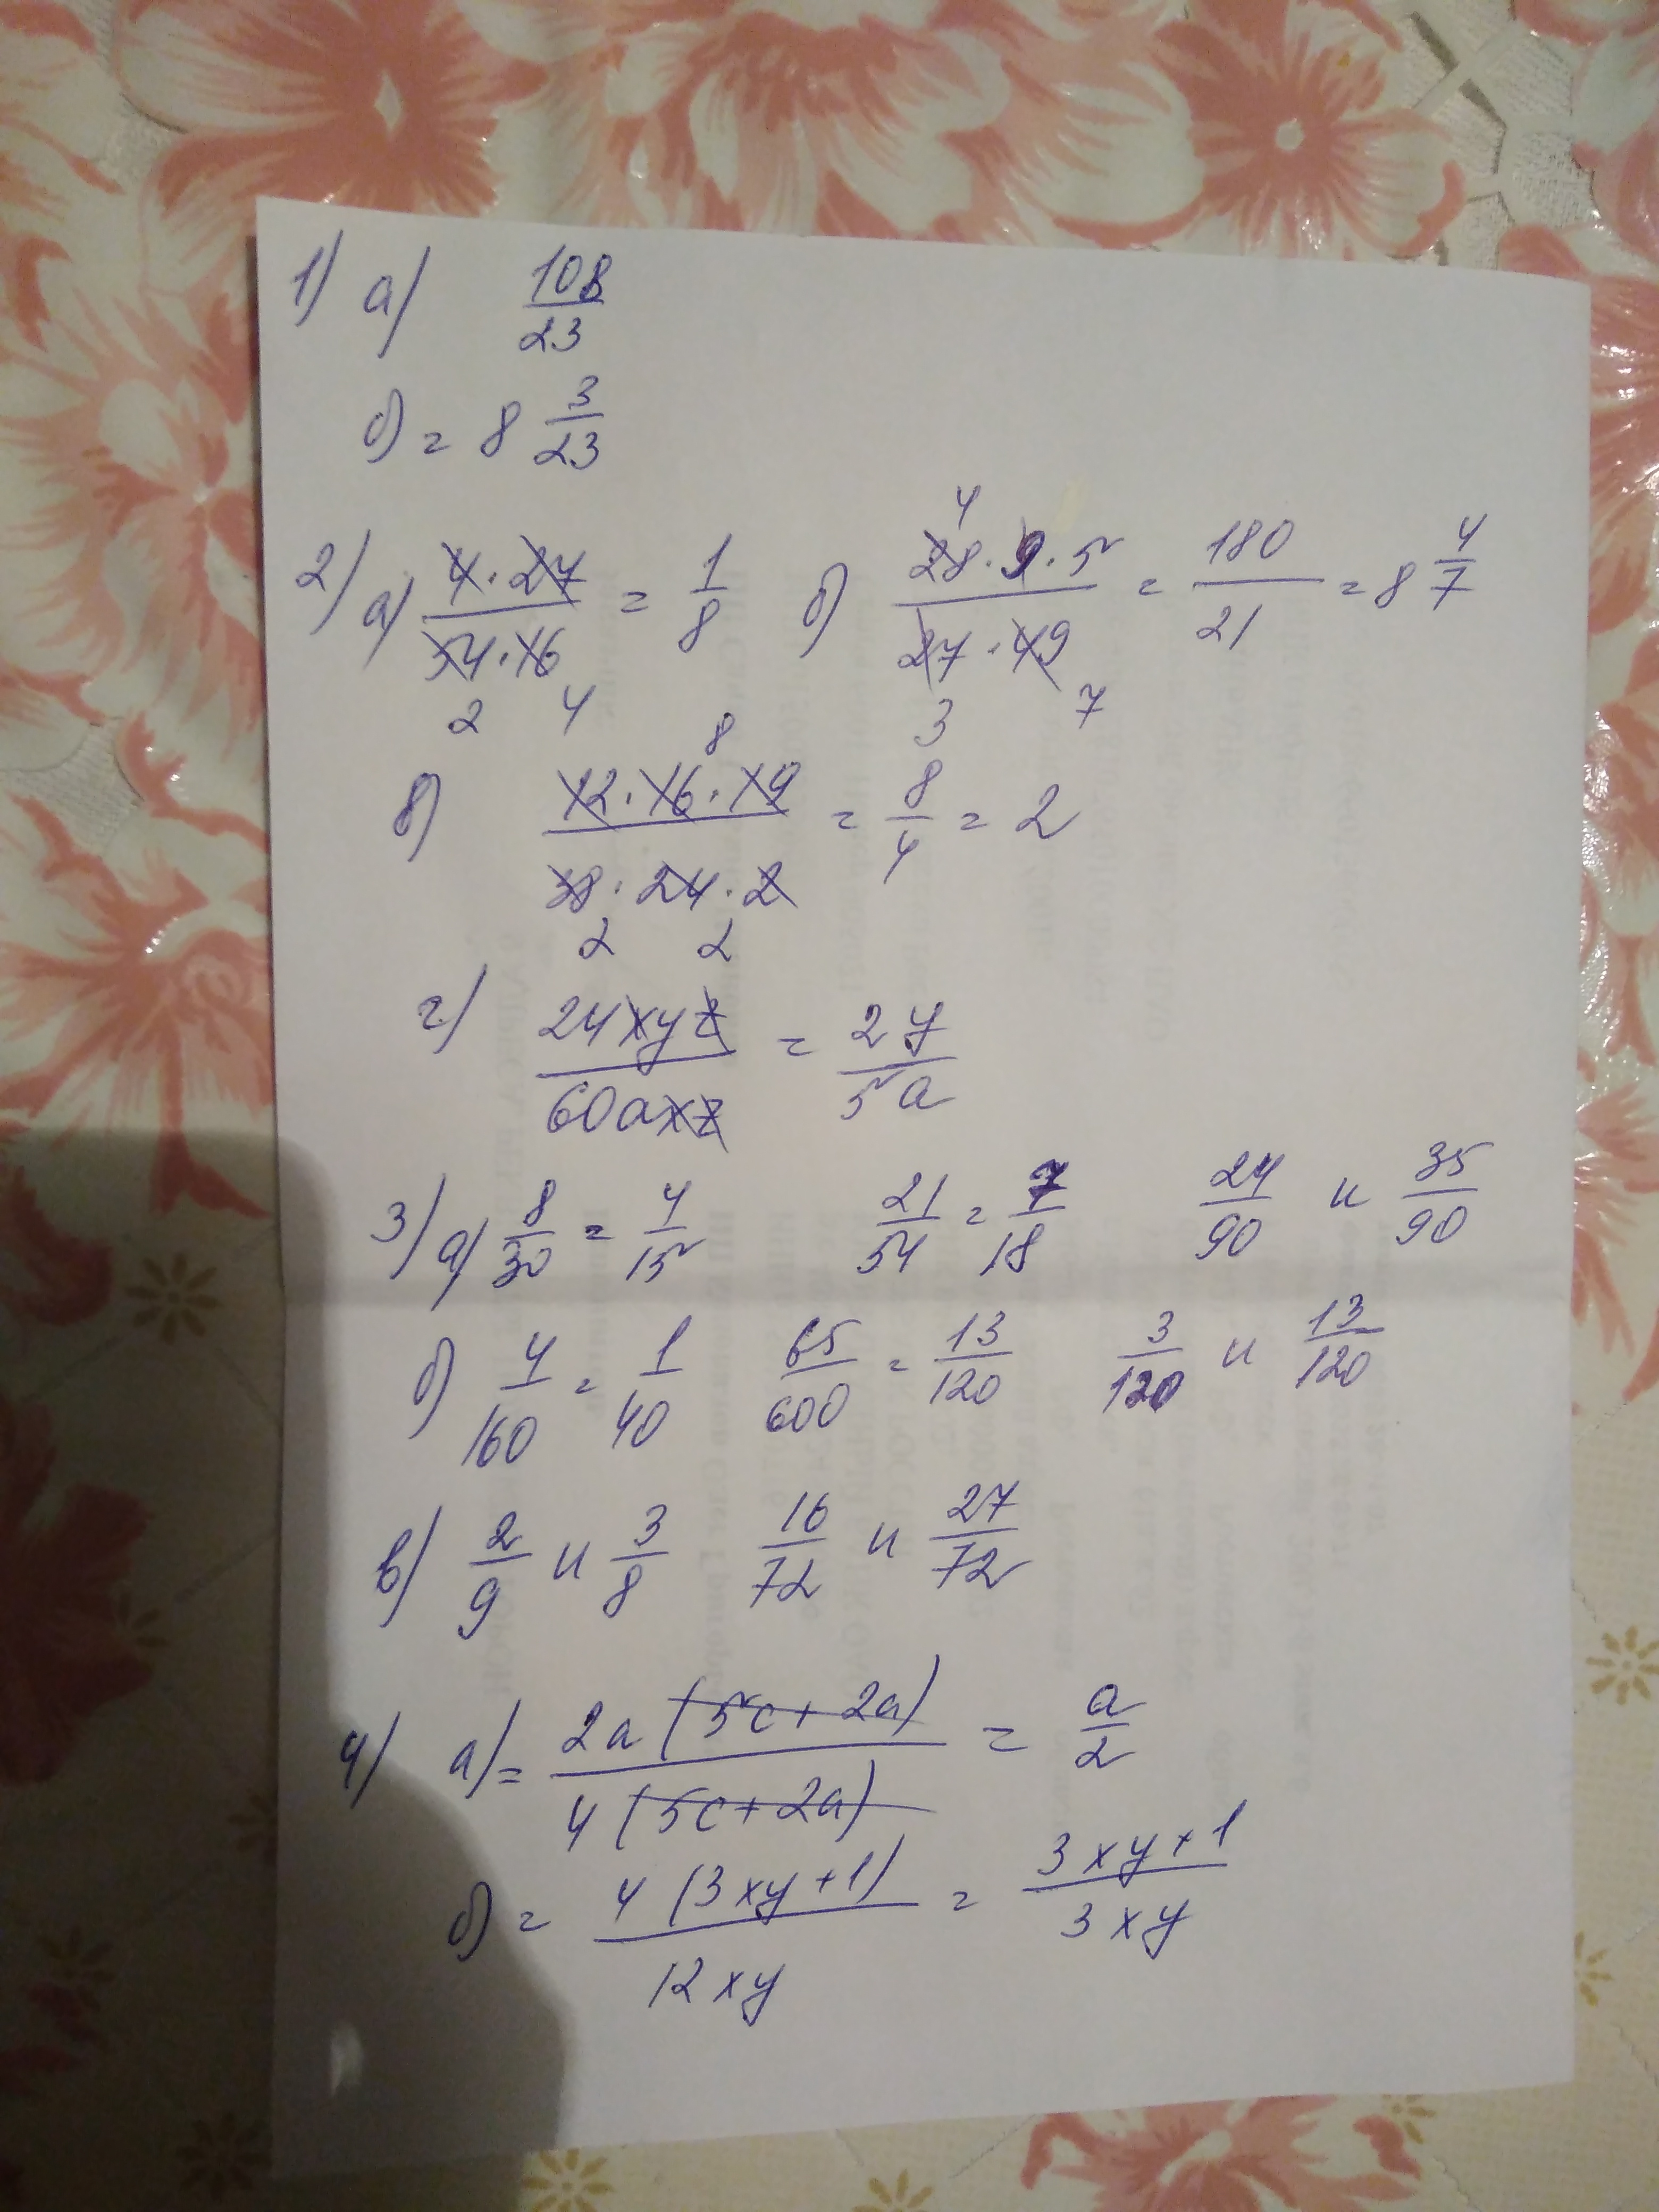 1) а) 108/23
б) = 8 3/23
2) а) 4·27/54·16 = 1/8 б) 28·9·5/27·49 = 180/21 = 8 4/7
2 4 3 7 4
в) 12·16·19/38·24·2 = 8/4 = 2
8 2 2
г) 24xyz/60axz = 2y/5a
3) а) 8/30 = 4/15 21/54 = 7/18 24/90 и 35/90
б) 4/160 = 1/40 65/600 = 13/120 3/120 и 13/120
в) 2/9 и 3/8 16/72 и 27/72
4) а) = 2a(5c+2a)/4(5c+2a) = a/2
б) = 4(3xy+1)/12xy = 3xy+1/3xy